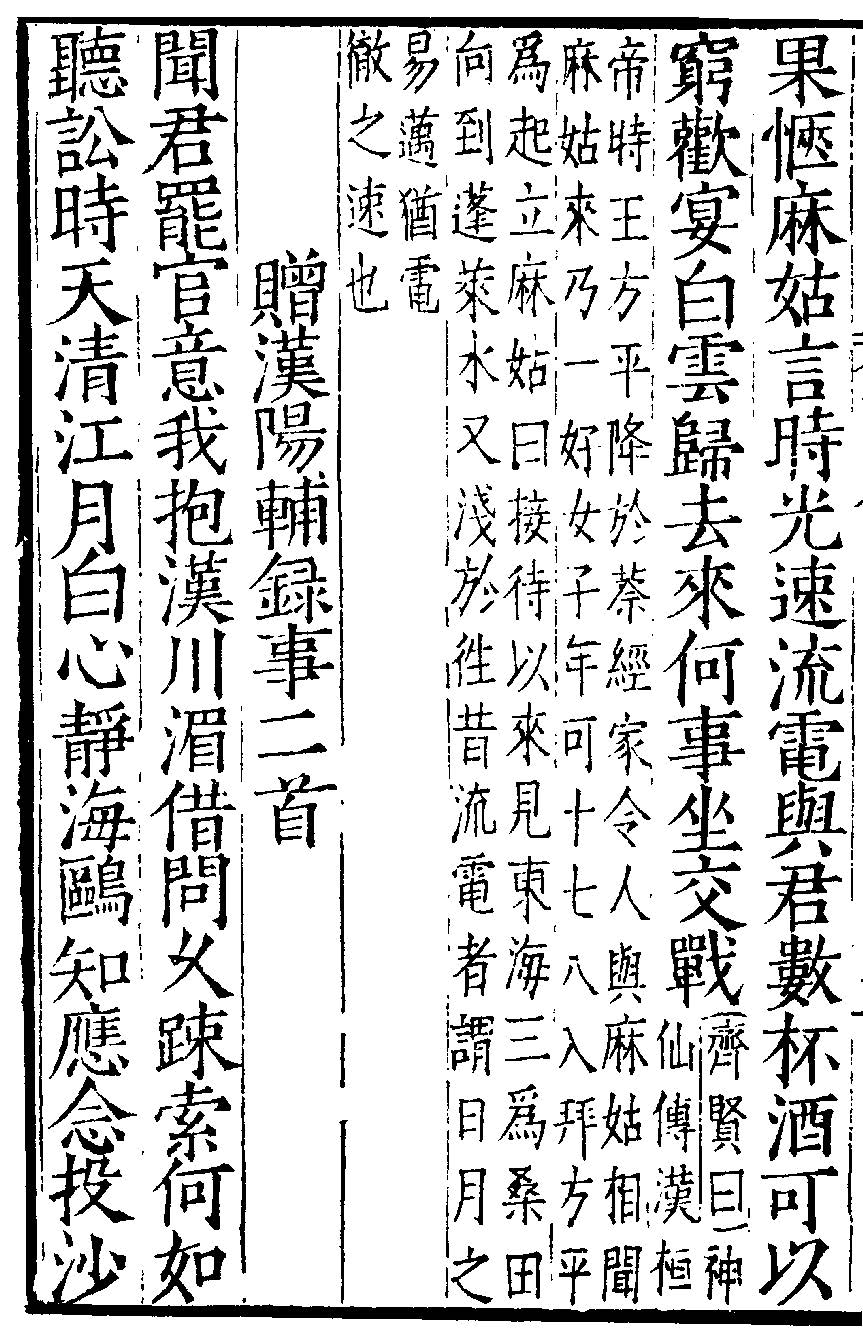 果愜麻姑言時光速流電與君數杯酒可以
窮歡宴白雲歸去來何事坐交戰
齊賢曰神
仙傳漢桓
帝時王方平降於蔡經家令人與麻姑相聞
麻姑來乃一好女子年可十七八入拜方平
爲起立麻姑曰接待以來見東海三爲桑田
向到蓬萊水又淺於徃昔流電者謂日月之
易邁猶電
徹之速也
贈漢陽輔録事二首
聞君罷官意我抱漢川湄借問久踈索何如
聽訟時天清江月白心靜海鷗知應念投沙